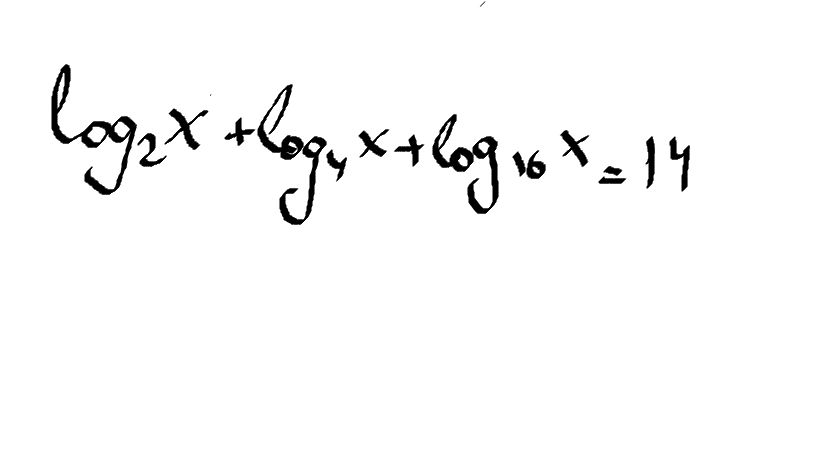 log₂x + log₄x + log₁₆x = 14